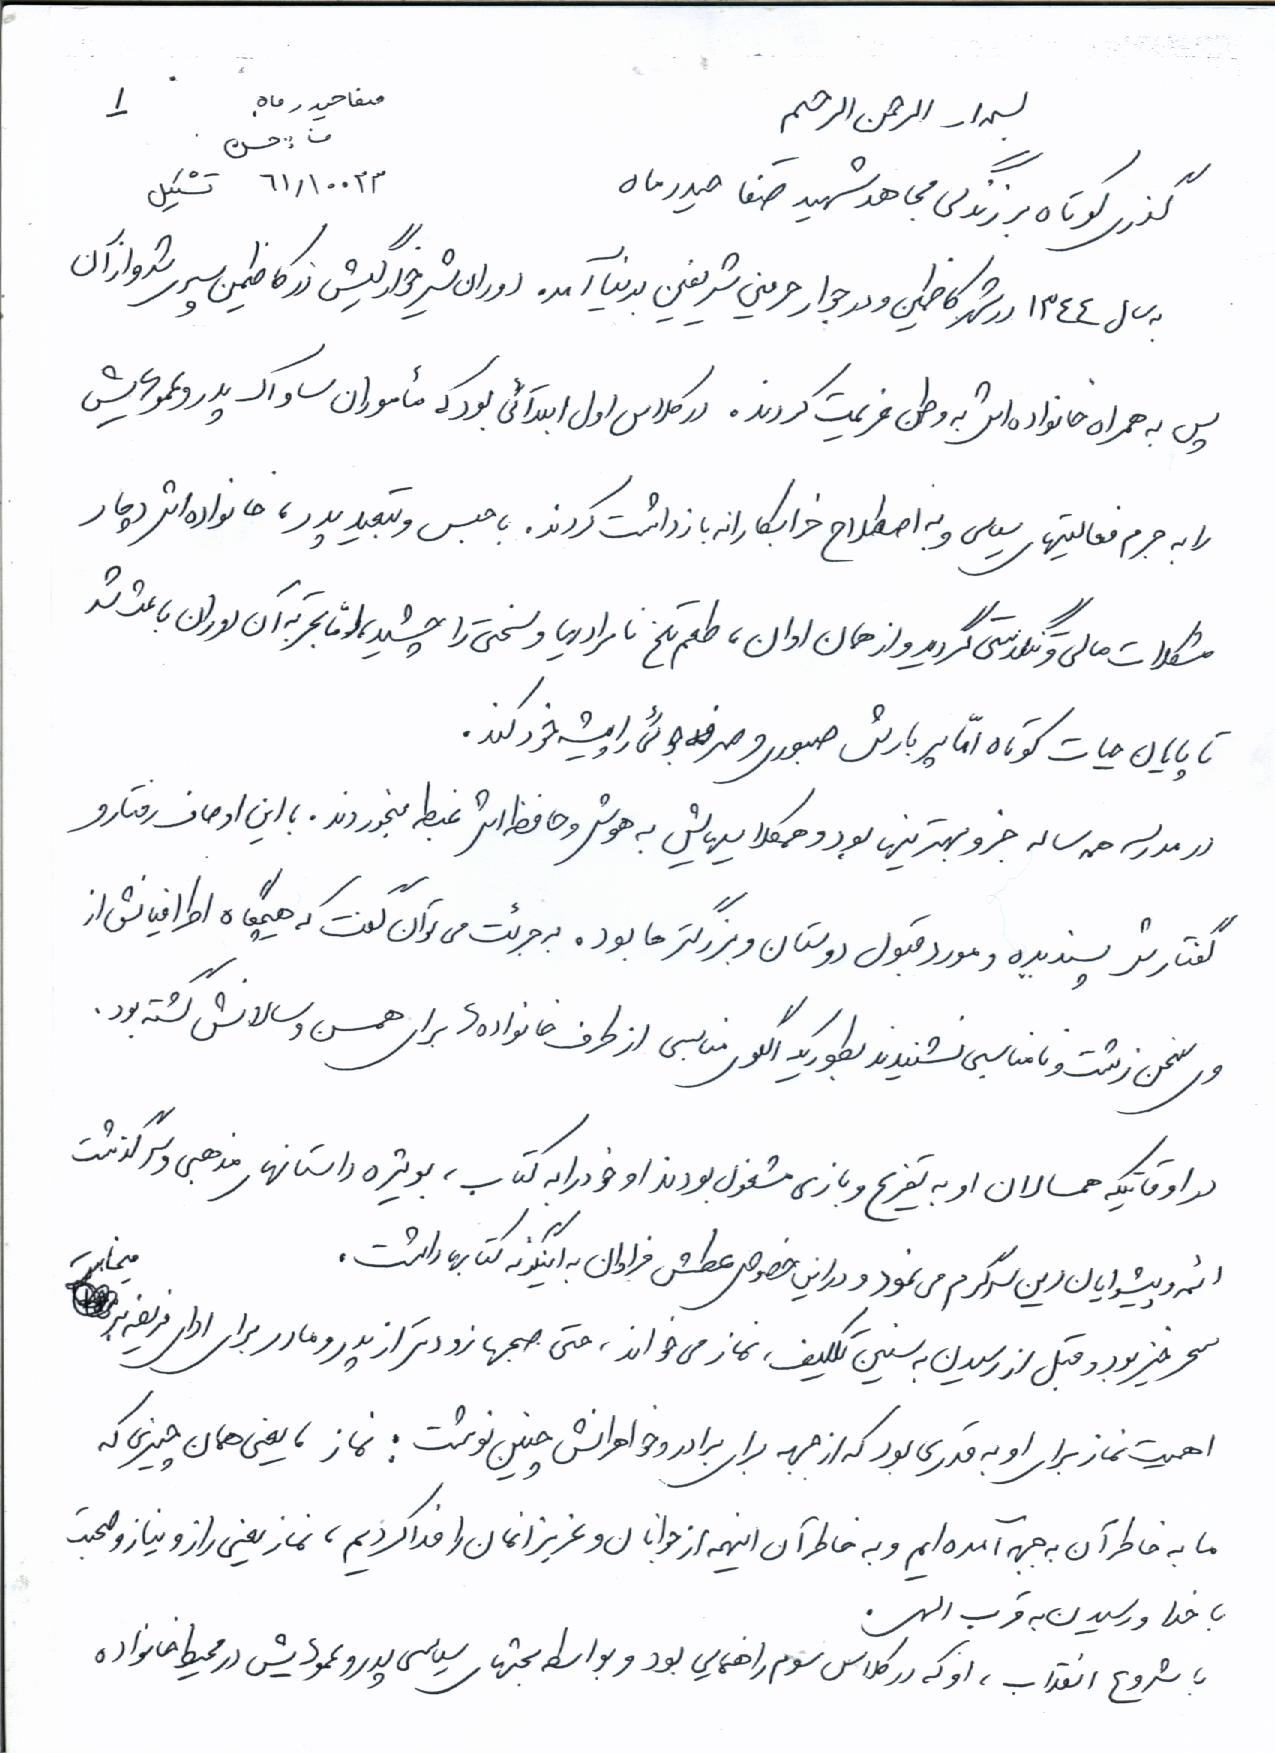 بسم الله الرحمن الرحیم
صفا حیدر ماه
۱
ف : حسن
۶۱/۱۰۰۲۳ تشکیل
گذری کوتاه بر زندگی مجاهد شهید صفا حیدر ماه
به سال ۱۳۴۴ در شهر کاظمین و در جوار حرمین شریفین بدنیا آمد. دوران شیرخوارگیش در کاظمین سپری شد و از آن
پس به همراه خانواده‌اش به وطن عزیمت کردند. در کلاس اول ابتدائی بود که مأموران ساواک پدر و عموهایش
را به جرم فعالیتهای سیاسی و به اصطلاح خرابکارانه بازداشت کردند. با حبس و تبعید پدر، خانواده‌اش دچار
مشکلات مالی و تنگدستی گردید و از همان اوان، طعم تلخ نامرادیها و سختی را چشید، امّا تجربه آن دوران باعث شد
تا پایان حیات کوتاه امّا پر بارش صبوری و صرفه جوئی را پیشه خود کند.
در مدرسه همه ساله جزو بهترینها بود و همکلاسیهایش به هوش و حافظه‌اش غبطه میخوردند. با این اوصاف رفتار و
گفتارش پسندیده و مورد قبول دوستان و بزرگترها بود. به جرئت می توان گفت که هیچگاه اطرافیانش از
وی سخن زشت و نامناسبی نشنیدند بطوریکه الگوی مناسبی از طرف خانواده‌ها برای همسن و سالانش گشته بود.
در اوقاتیکه همسالان او به تفریح و بازی مشغول بودند او خود را به کتاب، بویژه داستانهای مذهبی و سرگذشت
ائمه و پیشوایان دین سرگرم می نمود و در این خصوص عطش فراوان به اینگونه کتابها داشت.
سحر خیز بود و قبل از رسیدن به سنین تکلیف، نماز می خواند، حتی صبحها زودتر از پدر و مادر برای ادای فریضه بر میخاست
اهمیت نماز برای او به قدری بود که از جبهه برای برادر و خواهرانش چنین نوشت: نماز، یعنی همان چیزی که
ما به خاطر آن به جبهه آمده ایم و به خاطر آن اینهمه از جوانان و عزیزانمان را فدا کردیم، نماز یعنی راز و نیاز و صحبت
با خدا و رسیدن به قرب الهی.
با شروع انقلاب، او که در کلاس سوم راهنمایی بود و بواسطه بحثهای سیاسی پدر و عموهایش در محیط خانواده